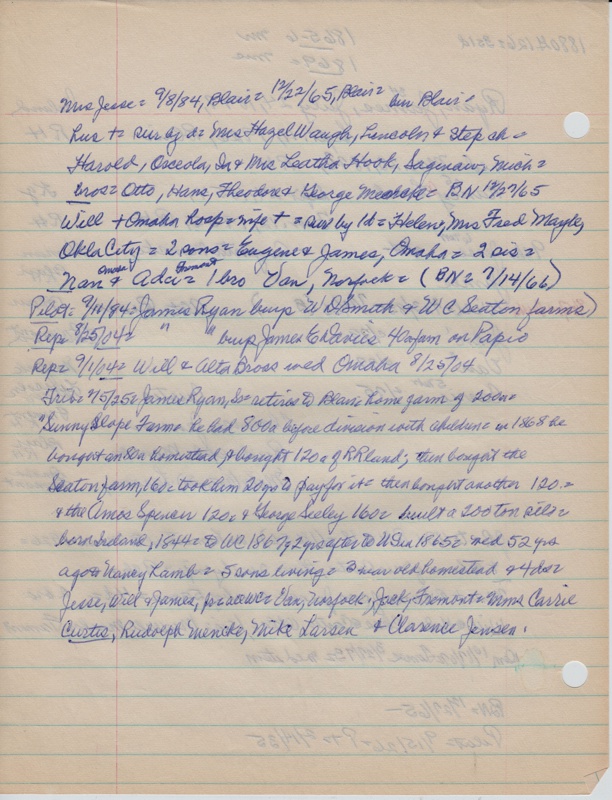 Mrs Jesse = 9/8/84, Blair = 12/22/65, Blair = bur Blair =
hus + = sur by d = Mrs Hazel Waugh, Lincoln & step ch =
Harold, Osceola, In & Mrs Leatha Hook, Saginaw, Mich =
bros = Otto, Hans, Theodore & George Mencke = BN 12/27/65
Will + Omaha hosp = wife + = sur by 1d = Helen, Mrs Fred
Okla City = 2 sons = Eugene & James, Omaha = 2 sis =
Nan Omaha & Ada = Fremont 1 bro Van, Norfolk = (BN = 7/14/66)
Pilot = James Ryan buys W D Smith & W C Seaton farms)
Rep = 8/25/04 = " " buys James E Davies 40a farm on Papio
Rep = 9/1/04 = Will & Alta Bross wed Omaha 8/25/04
Trib = 9/5/25 = James Ryan, Sr = retires to Blair = home farm of 200a =
"Sunny Slope Farm = he had 800a before division with children = in 1868 he
bought an 80a homestead & bought 120a of RR land; then bought the
Seaton farm, 160a took him 20 yrs to pay for it = then bought another 120 =
& the Amos Spencer 120a & George Seeley 160a built a 200 ton silo =
born Ireland, 1844 = to WC 1867, 2 yrs after to US in 1865 = wed 52 yrs
ago to Nancy Lamb = 5 sons living = 3 near old homestead & 4 das
Jesse, Will & James, = Van, Norfolk, Jack, Fremont = Mmes Carrie
Curtis, Rudolph Mencke, Mike Larsen & Clarence Jensen.